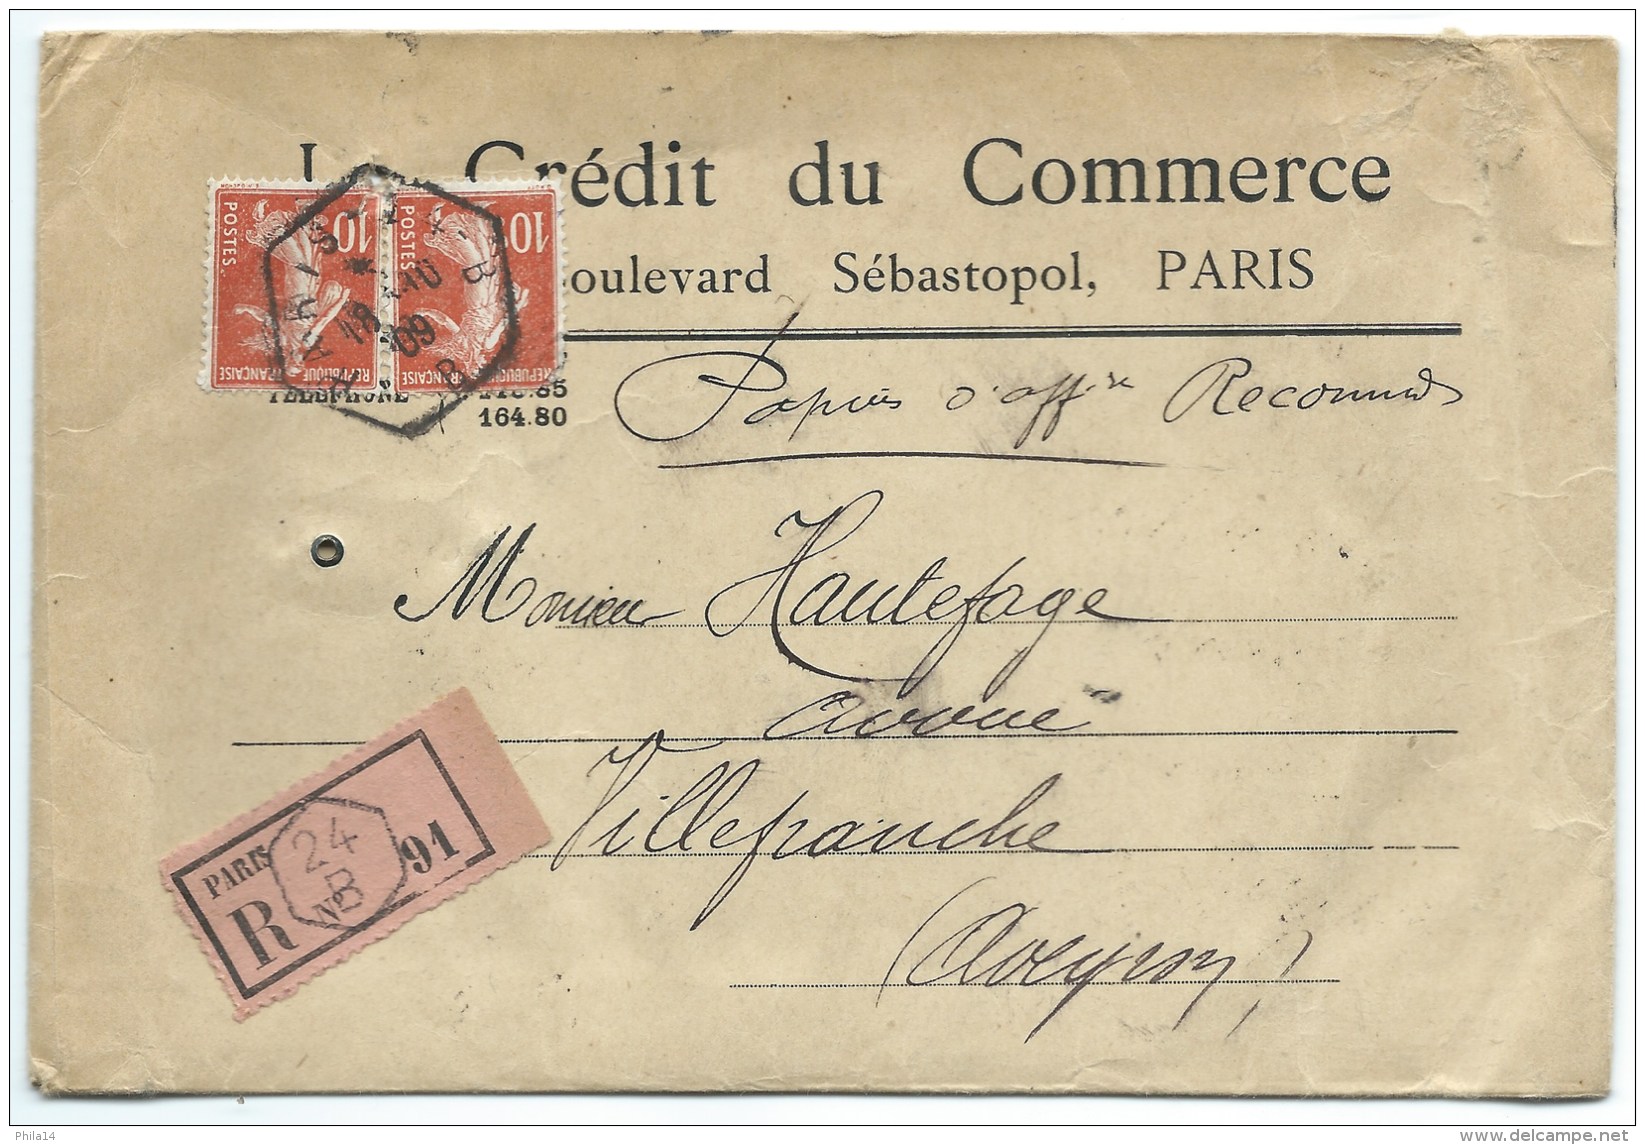 Crédit du Commerce
Boulevard Sébastopol, PARIS
10 POSTES. RÉPUBLIQUE FRANÇAISE
10 POSTES. RÉPUBLIQUE FRANÇAISE
PARIS
18
09
B
TELEPHONE
164.80
Papiers d'affres Recommdés
Monsieur Hautefage
avoué
Villefranche
(Aveyron)
PARIS
24
B
R No 91
Phila14
delcampe.net